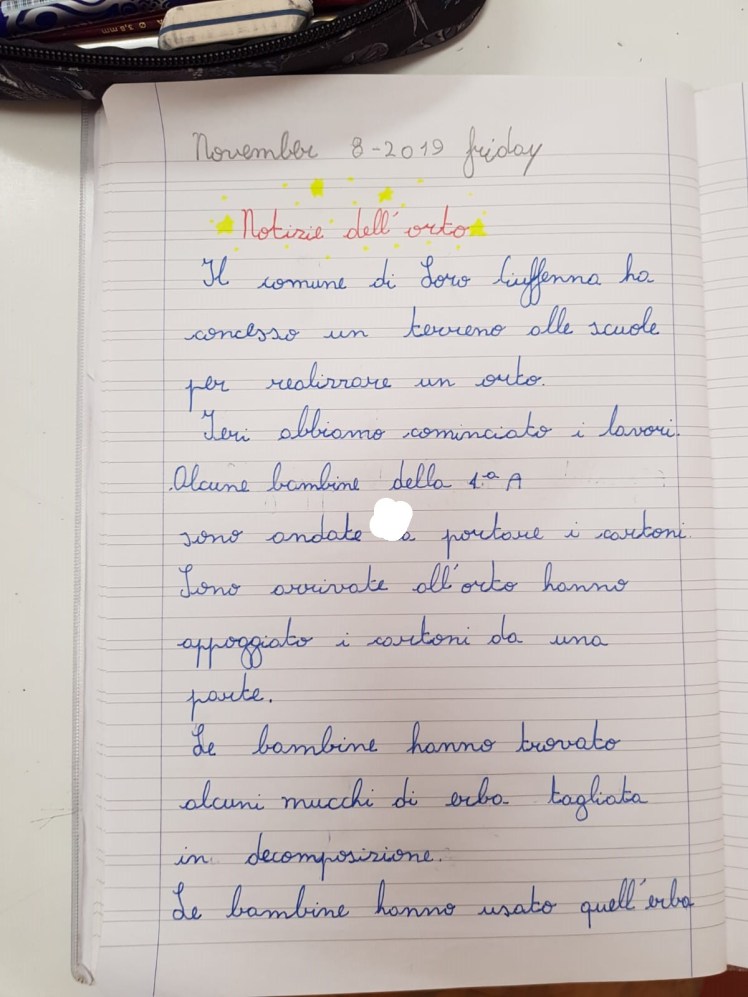 November 8-2019 friday
Notizie dell'orto
Il comune di Loro Ciuffenna ha
concesso un terreno alle scuole
per realizzare un orto.
Ieri abbiamo cominciato i lavori.
Alcune bambine della 4ª A
sono andate a portare i cartoni.
Sono arrivate all'orto hanno
appoggiato i cartoni da una
parte.
Le bambine hanno trovato
alcuni mucchi di erba tagliata
in decomposizione.
Le bambine hanno usato quell'erba